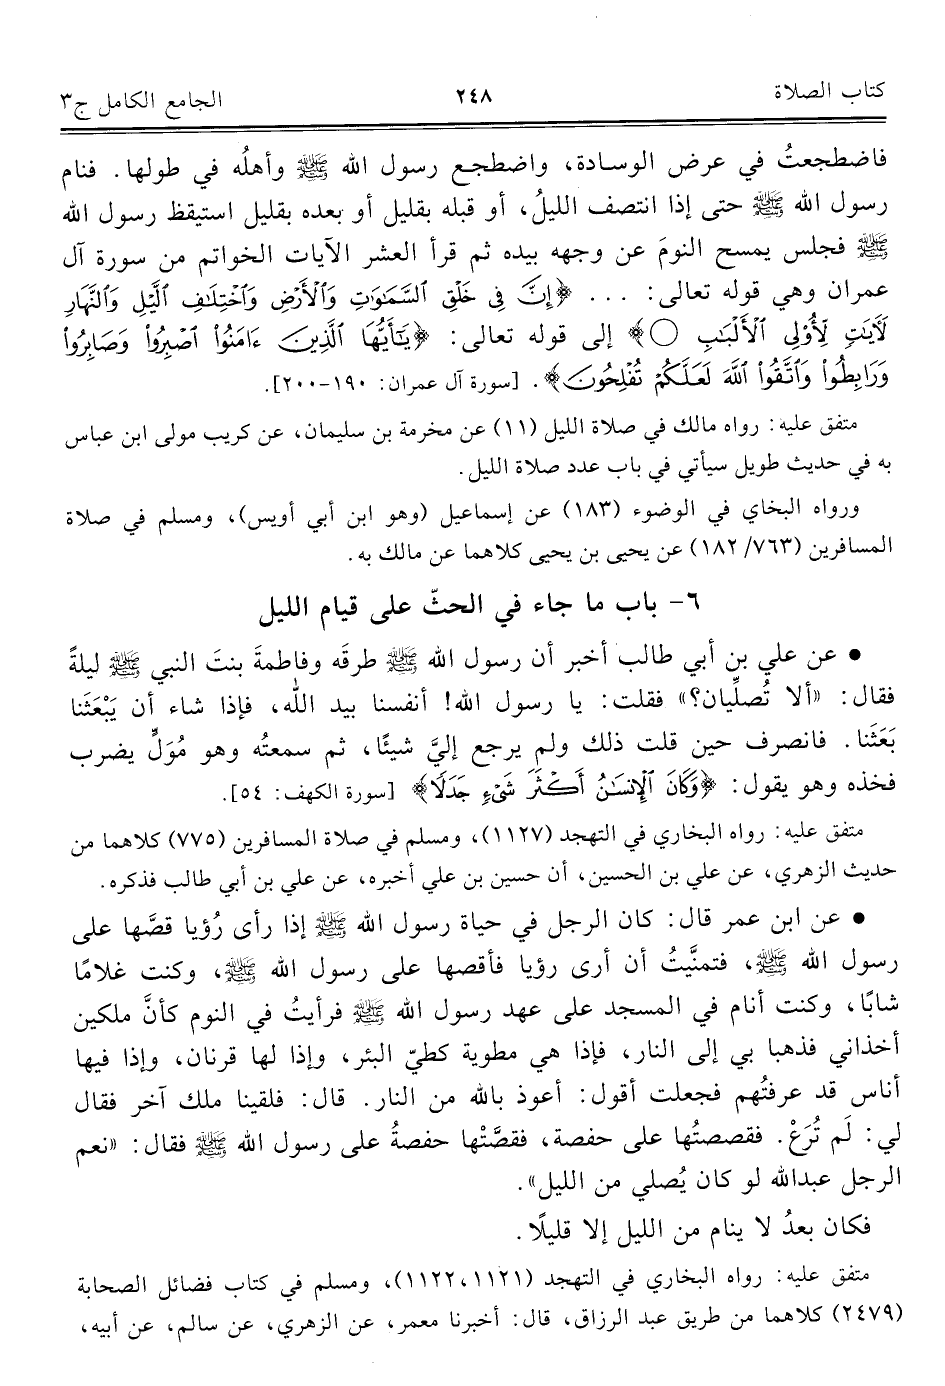 كتاب الصلاة ٢٤٨ الجامع الكامل ج٣
فاضطجعتُ في عرض الوسادة، واضطجع رسول الله ﷺ وأهلُه في طولها. فنام
رسول الله ﷺ حتى إذا انتصف الليلُ، أو قبله بقليل أو بعده بقليل استيقظ رسول الله
ﷺ فجلس يمسح النومَ عن وجهه بيده ثم قرأ العشر الآيات الخواتم من سورة آل
عمران وهي قوله تعالى: ... ﴿إِنَّ فِي خَلْقِ ٱلسَّمَٰوَٰتِ وَٱلْأَرْضِ وَٱخْتِلَٰفِ ٱلَّيْلِ وَٱلنَّهَارِ
لَأٓيَٰتٍ لِّأُوْلِي ٱلْأَلْبَٰبِ ۝﴾ إلى قوله تعالى: ﴿يَٰٓأَيُّهَا ٱلَّذِينَ ءَامَنُواْ ٱصْبِرُواْ وَصَابِرُواْ
وَرَابِطُواْ وَٱتَّقُواْ ٱللَّهَ لَعَلَّكُمْ تُفْلِحُونَ﴾. [سورة آل عمران: ١٩٠-٢٠٠].
متفق عليه: رواه مالك في صلاة الليل (١١) عن مخرمة بن سليمان، عن كريب مولى ابن عباس
به في حديث طويل سيأتي في باب عدد صلاة الليل.
ورواه البخاي في الوضوء (١٨٣) عن إسماعيل (وهو ابن أبي أويس)، ومسلم في صلاة
المسافرين (٧٦٣/ ١٨٢) عن يحيى بن يحيى كلاهما عن مالك به.
٦- باب ما جاء في الحثّ على قيام الليل
• عن علي بن أبي طالب أخبر أن رسول الله ﷺ طرقَه وفاطمةَ بنتَ النبي ﷺ ليلةً
فقال: «ألا تُصلِّيان؟» فقلت: يا رسول الله! أنفسنا بيد الله، فإذا شاء أن يَبْعَثَنا
بَعَثَنا. فانصرف حين قلت ذلك ولم يرجع إليَّ شيئًا، ثم سمعتُه وهو مُوَلٍّ يضرب
فخذه وهو يقول: ﴿وَكَانَ ٱلْإِنسَٰنُ أَكْثَرَ شَيْءٍ جَدَلًا﴾ [سورة الكهف: ٥٤].
متفق عليه: رواه البخاري في التهجد (١١٢٧)، ومسلم في صلاة المسافرين (٧٧٥) كلاهما من
حديث الزهري، عن علي بن الحسين، أن حسين بن علي أخبره، عن علي بن أبي طالب فذكره.
• عن ابن عمر قال: كان الرجل في حياة رسول الله ﷺ إذا رأى رُؤيا قصَّها على
رسول الله ﷺ، فتمنَّيتُ أن أرى رؤيا فأقصها على رسول الله ﷺ، وكنت غلامًا
شابًا، وكنت أنام في المسجد على عهد رسول الله ﷺ فرأيتُ في النوم كأنَّ ملكين
أخذاني فذهبا بي إلى النار، فإذا هي مطوية كطيّ البئر، وإذا لها قرنان، وإذا فيها
أناس قد عرفتُهم فجعلت أقول: أعوذ بالله من النار. قال: فلقينا ملك آخر فقال
لي: لَم تُرَعْ. فقصصتُها على حفصة، فقصَّتْها حفصةُ على رسول الله ﷺ فقال: «نعم
الرجل عبدالله لو كان يُصلي من الليل».
فكان بعدُ لا ينام من الليل إلا قليلًا.
متفق عليه: رواه البخاري في التهجد (١١٢١، ١١٢٢)، ومسلم في كتاب فضائل الصحابة
(٢٤٧٩) كلاهما من طريق عبد الرزاق، قال: أخبرنا معمر، عن الزهري، عن سالم، عن أبيه،